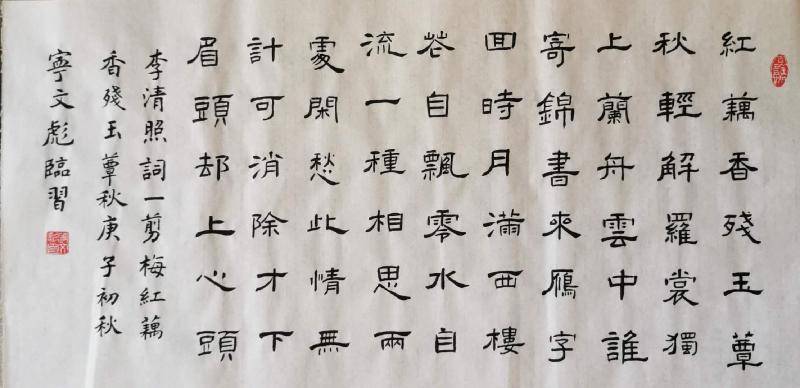 紅藕香殘玉蕈
秋輕解羅裳獨
上蘭舟雲中誰
寄錦書來鴈字
回時月滿西樓
花自飄零水自
流一種相思兩
處閑愁此情無
計可消除才下
眉頭却上心頭
李清照詞一剪梅紅藕
香殘玉蕈秋庚子初秋
寧文彪臨習